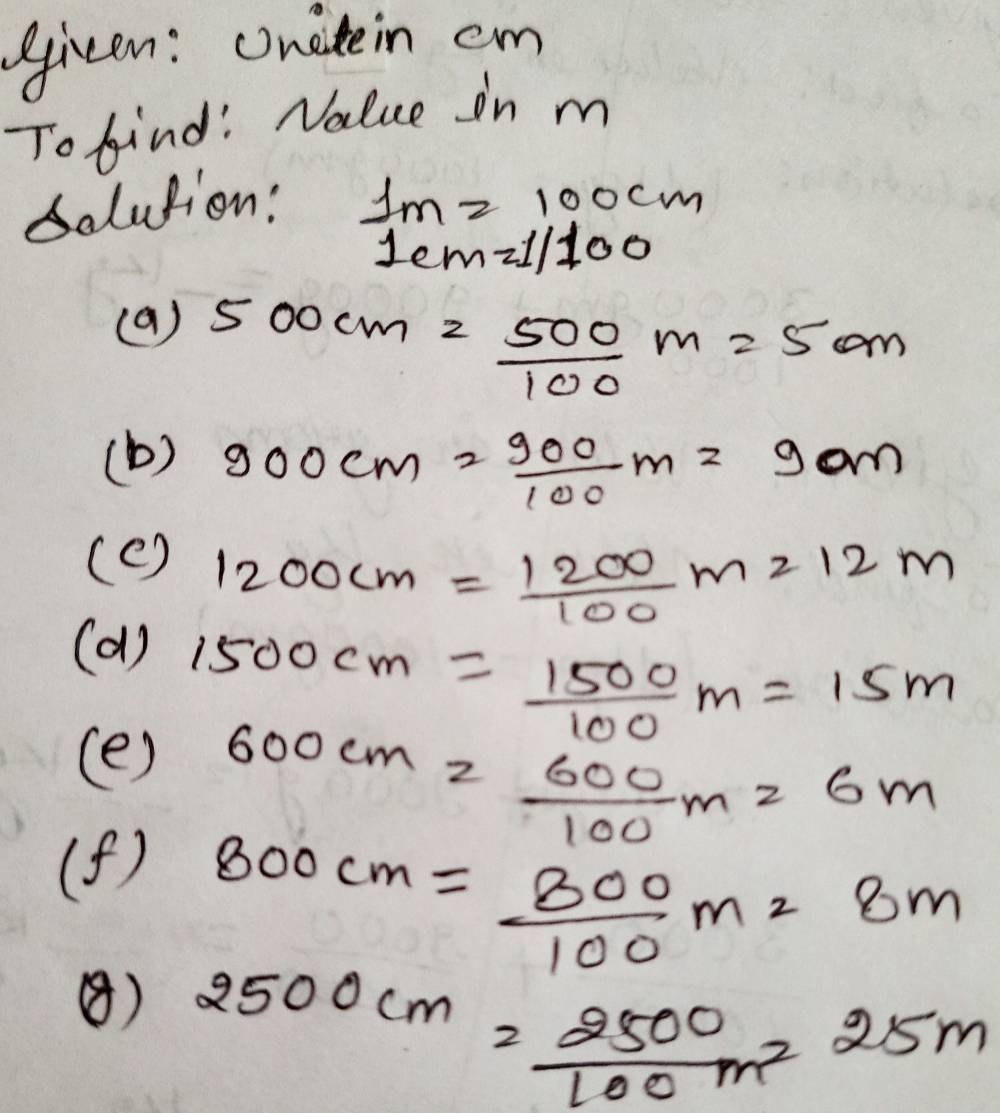 Given: Unite in cm
To find: Value in m
Solution: 1m = 100cm
1cm = 1/100
(a) 500cm = 500/100 m = 5 cm
(b) 900cm = 900/100 m = 9 cm
(c) 1200cm = 1200/100 m = 12 m
(d) 1500cm = 1500/100 m = 15m
(e) 600cm = 600/100 m = 6m
(f) 800cm = 800/100 m = 8m
g) 2500cm = 2500/100 m = 25m